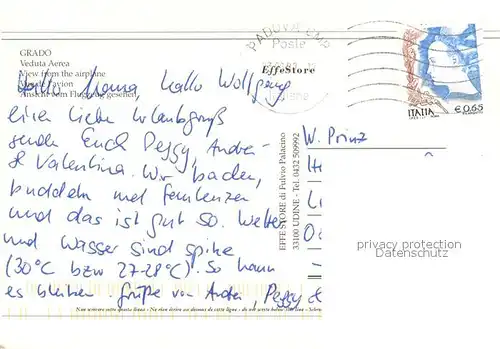 GRADO
Veduta Aerea
View from the airplane
Ansicht vom Flugzeug gesehen
PADOVA CMP
Poste
EffeStore
Hallo Mama Hallo Wolfgang
einen lieben Urlaubsgruß
senden Euch Peggy, Andre
& Valentina. Wir baden,
buddeln und faulenzen
und das ist gut so. Wetter
und Wasser sind spitze
(30°C bzw 27-28°C). So kann
es bleiben. Grüße von Andre, Peggy &
EFFE STORE di Fulvio Palacino
33100 UDINE - Tel. 0432 509992
ITALIA
€ 0,65
W. Prinz
privacy protection
Datenschutz
Non scrivere sotto questa linea - Ne rien écrire au-dessous de cette ligne - do not write below this line